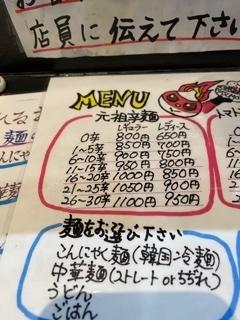 店員に伝えて下さい
MENU
元祖辛麺
レギュラー レディース
0辛 800円 650円
1~5辛 850円 700円
6~10辛 900円 750円
11~15辛 950円 800円
16~20辛 1000円 850円
21~25辛 1050円 900円
26~30辛 1100円 950円
麺をお選び下さい
こんにゃく麺(韓国冷麺)
中華麺(ストレート or ちぢれ)
うどん
ごはん